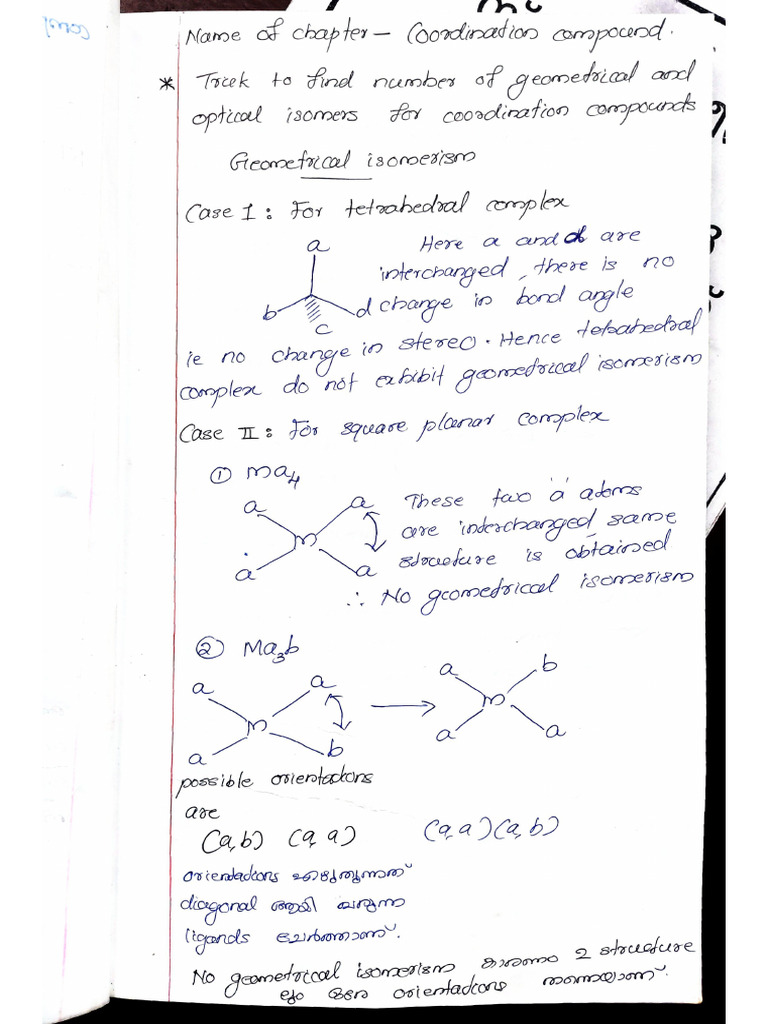 Name of chapter – Coordination compound.
* Trick to find number of geometrical and
optical isomers for coordination compounds
Geometrical isomerism
Case I : For tetrahedral complex
a
b
c
d
Here a and d are
interchanged, there is no
change in bond angle
ie no change in stereo. Hence tetrahedral
complex do not exhibit geometrical isomerism
Case II : For square planar complex
① Ma4
a a
M
a a
These two 'a' atoms
are interchanged, same
structure is obtained
∴ No geometrical isomerism
② Ma3b
a a
M
a b
a b
M
a a
possible orientations
are
(a,b) (a,a) (a,a) (a,b)
orientations എഴുതുന്നത്
diagonal ആയി വരുന്ന
ligands ചേർത്താണ്.
No geometrical isomerism കാരണം 2 structure
ലും ഒരേ orientations തന്നെയാണ്.